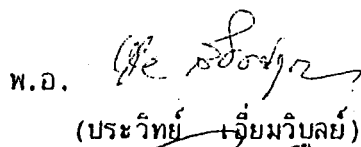 พ.อ.
(ประวิทย์ เจี่ยมวิบูลย์)